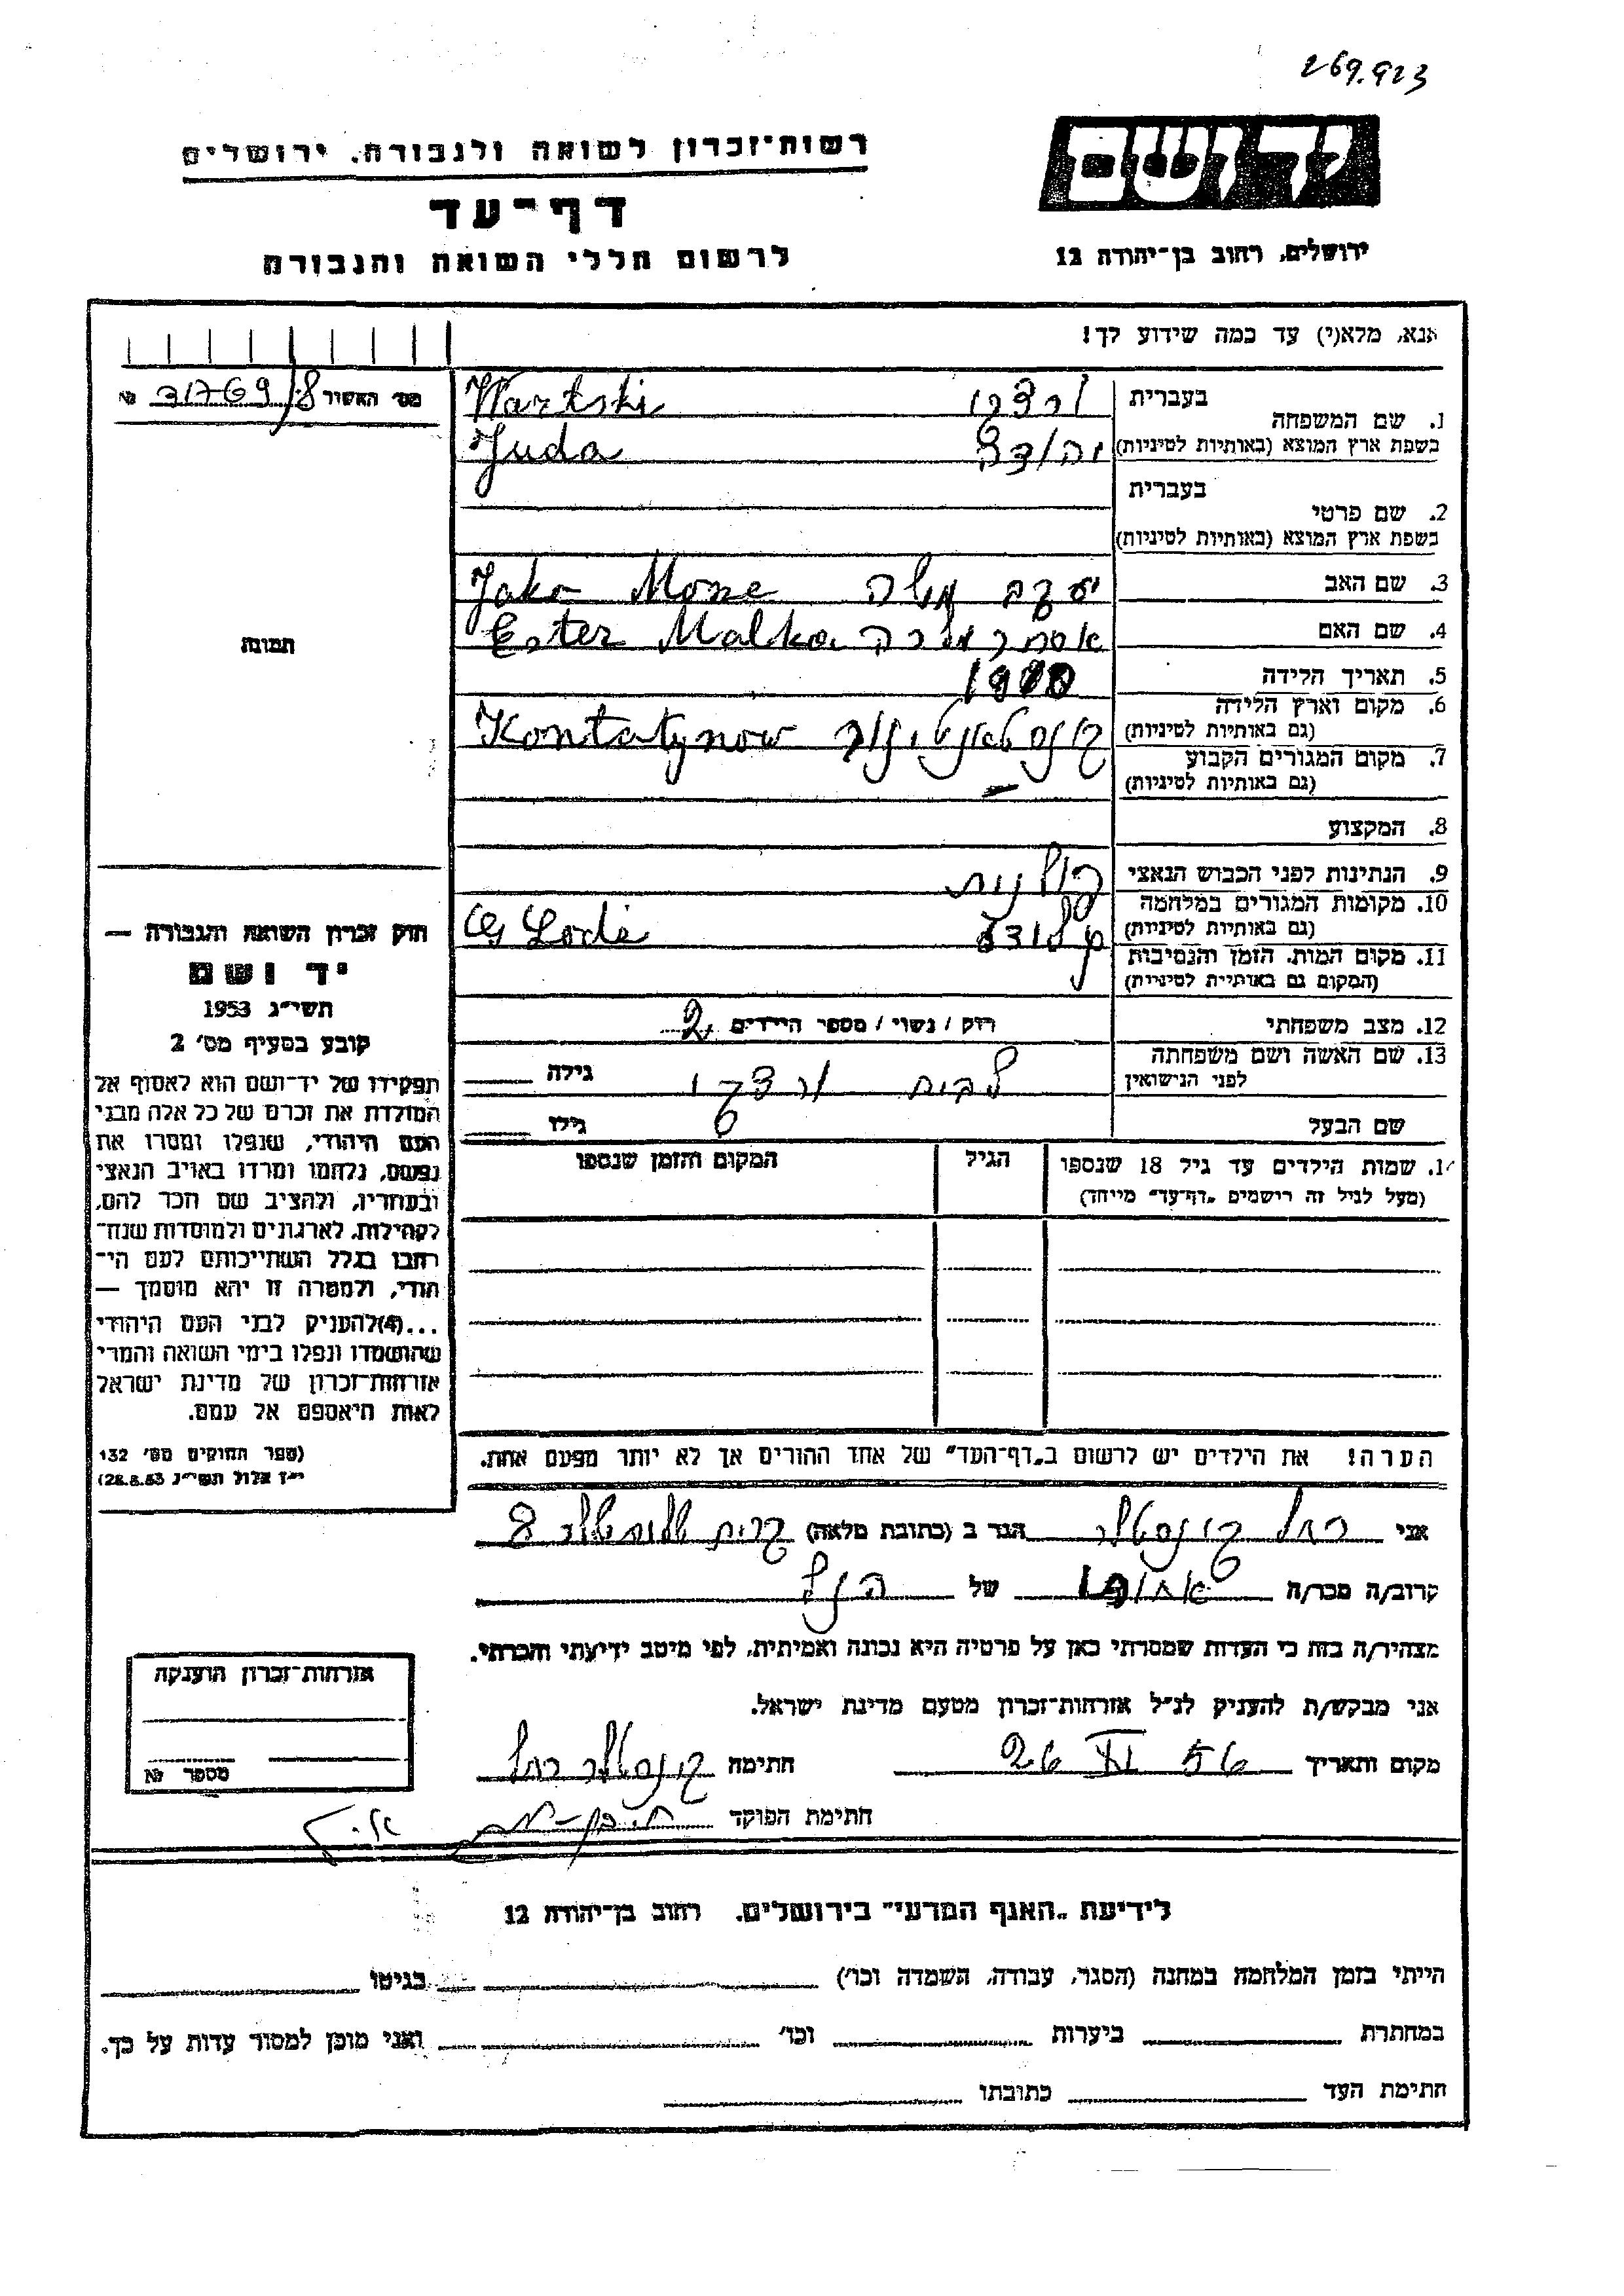 269.923
יד ושם
רשות־זכרון לשואה ולגבורה. ירושלים
דף־עד
ירושלים, רחוב בן־יהודה 12
לרשום חללי השואה והגבורה
אנא, מלא(י) עד כמה שידוע לך!
מס׳ האשור 31769/8 №
בעברית
1. שם המשפחה
בשפת ארץ המוצא (באותיות לטיניות)
ורצקי Wartski
יהודה Juda
בעברית
2. שם פרטי
בשפת ארץ המוצא (באותיות לטיניות)
3. שם האב יעקב משה Jako Mosze
4. שם האם אסתר מלכה Ester Malka
תמונה
5. תאריך הלידה
6. מקום וארץ הלידה
(גם באותיות לטיניות)
קונסטאנטינוב Kontatynow
7. מקום המגורים הקבוע
(גם באותיות לטיניות)
8. המקצוע
9. הנתינות לפני הכבוש הנאצי פולנית
10. מקומות המגורים במלחמה
(גם באותיות לטיניות)
11. מקום המות, הזמן והנסיבות
(המקום גם באותיות לטיניות)
12. מצב משפחתי רוק / נשוי / מספר הילדים 2
13. שם האשה ושם משפחתה
לפני הנישואין
לבית ורצקי גילה
שם הבעל גילו
14. שמות הילדים עד גיל 18 שנספו
(מעל לגיל זה רישמים „דף־עד” מייחד)
הגיל
המקום והזמן שנספו
חוק זכרון השואה והגבורה —
יד ושם
תשי״ג 1953
קובע בסעיף מס׳ 2
תפקידו של יד־ושם הוא לאסוף אל
המולדת את זכרם של כל אלה מבני
העם היהודי, שנפלו ומסרו את
נפשם, נלחמו ומרדו באויב הנאצי
ובעוזריו, ולהציב שם וזכר להם,
לקהילות, לארגונים ולמוסדות שנח־
רבו בגלל השתייכותם לעם הי־
הודי, ולמטרה זו יהא מוסמך —
...(4)להעניק לבני העם היהודי
שהושמדו ונפלו בימי השואה והמרי
אזרחות־זכרון של מדינת ישראל
לאות היאספם אל עמם.
(ספר החוקים מס׳ 132
י״ז אלול תשי״ג 28.8.53)
הערה! את הילדים יש לרשום ב„דף־העד” של אחד ההורים אך לא יותר מפעם אחת.
אני רחל הגר ב (כתובת מלאה) קרית 8
קרוב/ה מכר/ה של הנ״ל
מצהיר/ה בזה כי העדות שמסרתי כאן על פרטיה היא נכונה ואמיתית, לפי מיטב ידיעתי והכרתי.
אני מבקש/ת להעניק לנ״ל אזרחות־זכרון מטעם מדינת ישראל.
מקום ותאריך 26 XI 56 חתימה רחל
חתימת הפוקד
אזרחות־זכרון הוענקה
מספר №
לידיעת „האגף המדעי” בירושלים. רחוב בן־יהודה 12
הייתי בזמן המלחמה במחנה (הסגר, עבודה, השמדה וכו׳) בגיטו
במחתרת ביערות וכו׳ ואני מוכן למסור עדות על כך.
חתימת העד כתובתו